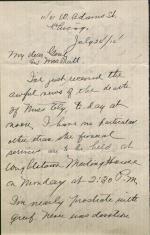 W. Adams St.
Chicago,
July 26/12
My dear
and Miss Pratt
I've just received the
awful news of the death
of Miss Ely, to day at
noon. I have no particulars
other than the funeral
services are to be held at
Longbetown Meeting House
on Monday at 2:30 P.M.
I'm nearly prostrate with
grief. There was devotion